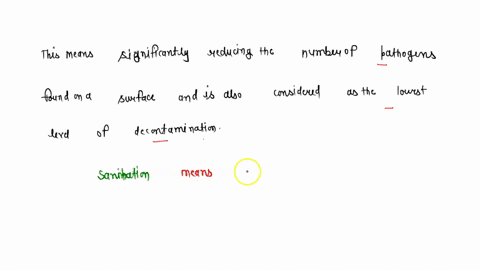 This means significantly reducing the number of pathogens
found on a surface and is also considered as the lowest
level of decontamination.
Sanitation means